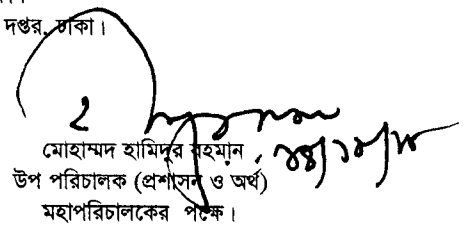 দপ্তর, ঢাকা।
মোহাম্মদ হামিদুর রহমান
উপ পরিচালক (প্রশাসন ও অর্থ)
মহাপরিচালকের পক্ষে।